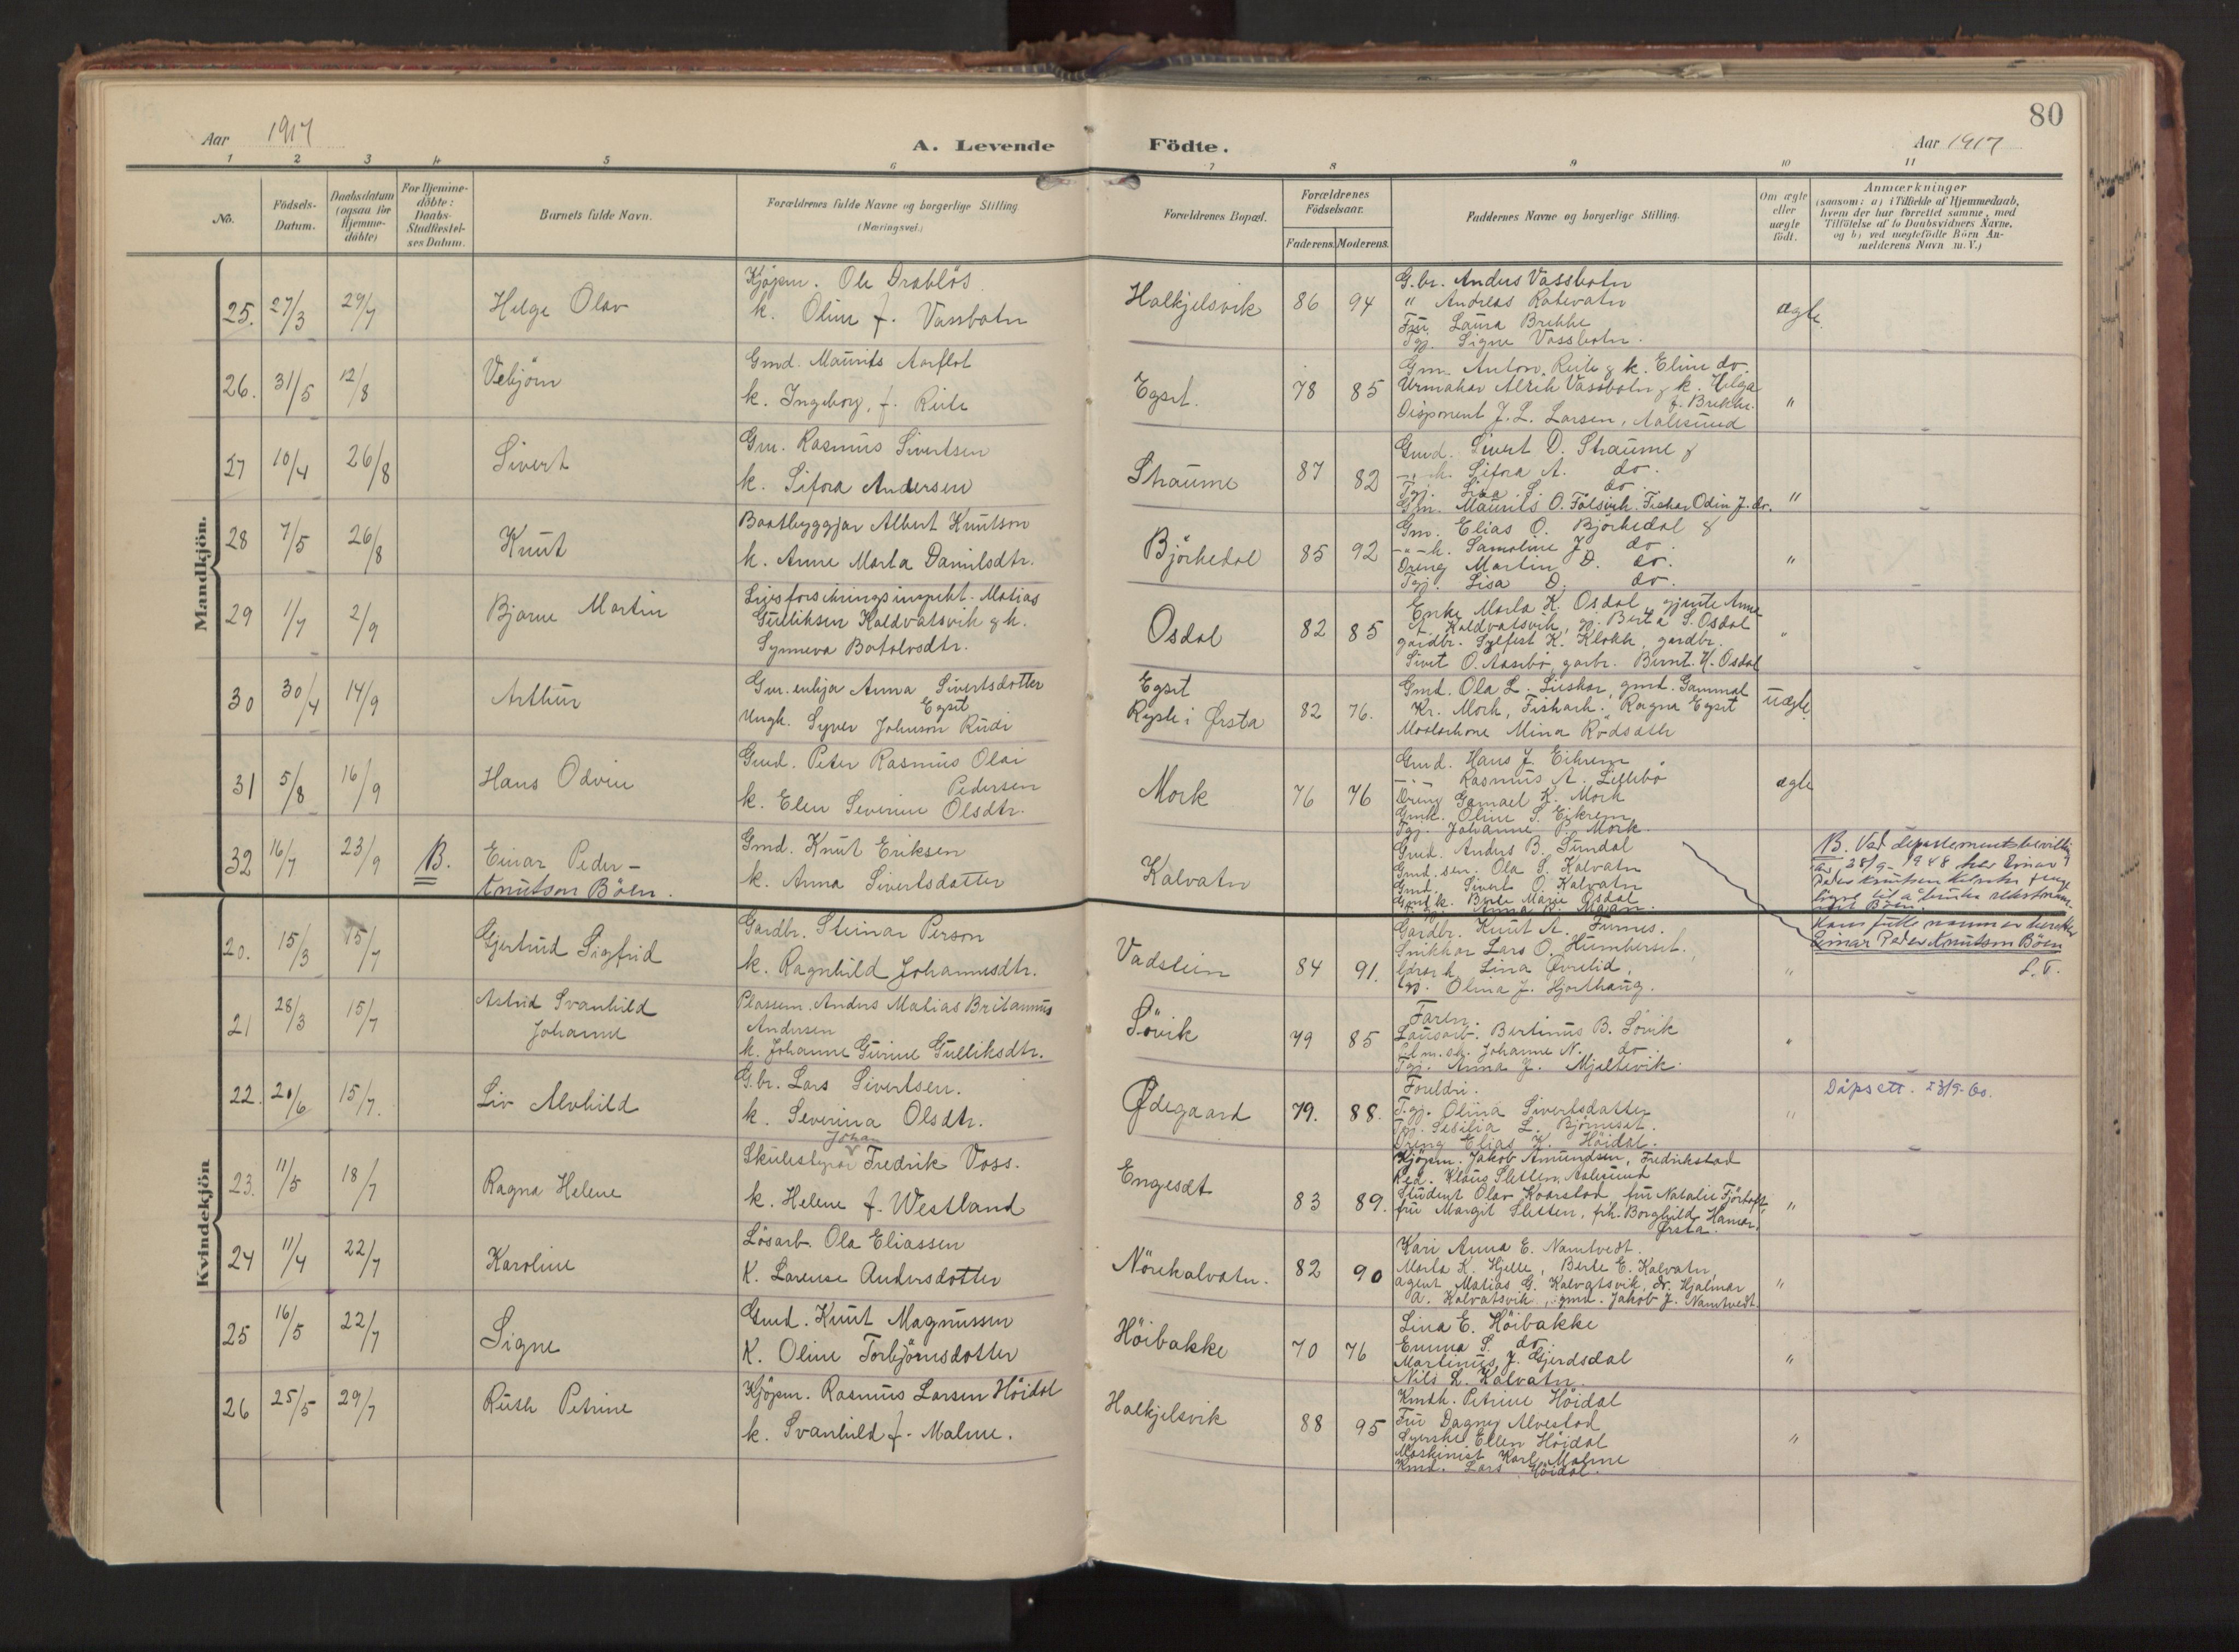 80
Aar 1917
A. Levende Födte.
Aar 1917
1 2 3 4 5 6 7 8 9 10 11
No.
Födsels-Datum.
Daabsdatum (ogsaa for Hjemme-döbte)
For Hjemme-döbte: Daabs-Stadfæstel-ses Datum.
Barnets fulde Navn.
Forældrenes fulde Navne og borgerlige Stilling (Næringsvei.)
Forældrenes Bopæl.
Forældrenes Födselsaar.
Faderens. Moderens.
Faddernes Navne og borgerlige Stilling.
Om ægte eller uægte födt.
Anmærkninger
(saasom: a) i Tilfælde af Hjemmedaab,
hvem der har forrettet samme, med
Tilföielse af to Daabsvidners Navne.
og b) ved uægtefödte Börn An-
melderens Navn m. V.)
Mandkjön.
25. 27/3 29/7 Helge Olav
Kjöpm. Ole Drablös.
k. Oline f. Vassbotn
Halkjelsvik 86 94
G.br. Anders Vassbotn
" Andreas Rotevatn
Fru Laura Brekke
Tgj. Signe Vassbotn.
ægte.
26. 31/5 12/8 Vebjörn
Gmd. Maurits Aarflot
k. Ingeborg, f. Reite
Egset. 78 85
Gm. Anton Reite & k. Eline do.
Urmakar Alrek Vassbotn & k. Helga
f. Brekke.
Disponent J. L. Larsen, Aalesund
"
27 10/4 26/8 Sivert
Gm. Rasmus Sivertsen
k. Sifora Andersen
Straume 87 82
Gmd. Sivert D. Straume &
k. Sifora A. do.
Tgj. Lisa S. do.
Gm. Maurits O. Folsvik. Fiskar Odin J. do.
"
28 7/5 26/8 Knut
Baatbyggjar Albert Knutson
k. Anne Marta Danilsdtr.
Björkedal 85 92
Gm. Elias O. Björkedal &
-"-k. Samoline J. do.
Dreng Martin D. do.
Tgj. Lisa D. do.
"
29 1/7 2/9 Bjarne Martin
Livsforsikringsinspekt. Matias
Gulliksen Kaldvatsvik & k.
Synneva Botolvsdtr.
Osdal 82 85
Enke Marta K. Osdal, gjente Anne
A. Kaldvatsvik, gj. Berta S. Osdal
gardbr. Sylfest K. Klokk, gardbr.
Sivert O. Aasebö, garbr. Bernt. H. Osdal
"
30 30/4 14/9 Arthur
Gm. enkja Anna Sivertsdotter
Egset
Ungk. Syver Johnson Rudi
Egset
i Ørsta 82 76.
Gmd. Ola L. gmd. Gammal
Kr. Mork, Fiskark. Ragna Egset
Mina Rödsæth
uægte.
31 5/8 16/9 Hans Odvin
Gmd. Peter Rasmus Olai
Pedersen
k. Elen Severine Olsdtr.
Mork 76 76
Gmd. Hans J. Eikrem
-"- Rasmus A. Lillebö
Dreng Gamael K. Mork
Gmk. Oline S. Eikrem
Tgj. Johanne P. Mork.
ægte
32 16/7 23/9 B. Einar Peder -
Knutson Böen.
Gmd. Knut Eriksen
k. Anna Sivertsdatter
Kalvatn
Gmd. Anders B. Sundal
Gmd. sen. Ola S. Kalvatn
Gmd. Sivert O. Kalvatn
Gmd. k. Berte Marie Osdal
Anna
B. Ved departementsbevilling
av 28/9 - 1948 har Einar
Peder Knutsen Kalvatn
til å bruke slektsnam-
net Böen.
Hans fulle namn er deretter
Einar Peder Knutson Böen
L. T.
Kvindekjön
20. 15/3 15/7 Gjertrud Sigfrid
Gardbr. Steinar Person
k. Ragnhild Johannesdtr.
Vadstein 84 91.
Gardbr. Knut A. Furnes.
Snikkar Lars O. Humberset.
Lina Øvrelid,
Tgj. Olina J. Hjorthaug.
"
21 28/3 15/7 Astrid Svanhild
Johanne
Plassem. Anders Matias Britannus
Andersen
k. Johanne Gurine Gulliksdtr.
Søvik 79 85
Faren.
Lausarb. Bertinus B. Sövik
Johanne N. do.
Tgj. Anna J. Mjeltevik.
"
22. 20/6 15/7. Liv Alvhild
G.br. Lars Sivertsen.
k. Severina Olsdtr.
Ødegaard 79. 88.
Foreldri.
Tgj. Olina Sivertsdatter
Tgj. Sesilia L. Björneset.
Dreng Elias K. Höidal.
"
Dåpsatt. 23/9-60.
23. 11/5 18/7 Ragna Helene
Johan
Skulestyrar Fredrik Voss.
k. Helene f. Westland
Engeset 83 89.
Kjöpm. Jakob Amundsen, Fredrikstad
Red. Klaus Sletten, Aalesund
Student Olav Kaarstad, fru Natalie Fjörtoft
fru Margit Sletten, frk. Borghild Hamar,
Ørsta.
"
24 11/4 22/7 Karoline
Lösarb. Ola Eliassen
K. Larense Andersdotter
Nörekalvatn. 82 90
Kari Anna E. Namtvedt.
Marta K. Hjelle, Berte E. Kalvatn,
agent Matias G. Kalvatsvik, dr. Hjalmar
A. Kalvatsvik, gmd. Jakob J. Namtvedt.
"
25 16/5 22/7 Signe
Gmd. Knut Magnussen
K. Oline Torbjörnsdotter
Höibakke 70 76
Lina E. Höibakke
Emma S. do.
Martinus J. Gjerdsdal
Nils L. Kalvatn.
"
26 25/5 29/7 Ruth Petrine
Kjöpm. Rasmus Larsen Höidal
k. Svanhild f. Malme.
Halkjelsvik 88 95
Kmdk. Petrine Höidal
Fru Dagny Alvestad
Syerske Ellen Höidal
Maskinist Karl Malme
Kmd. Lars Höidal.
"